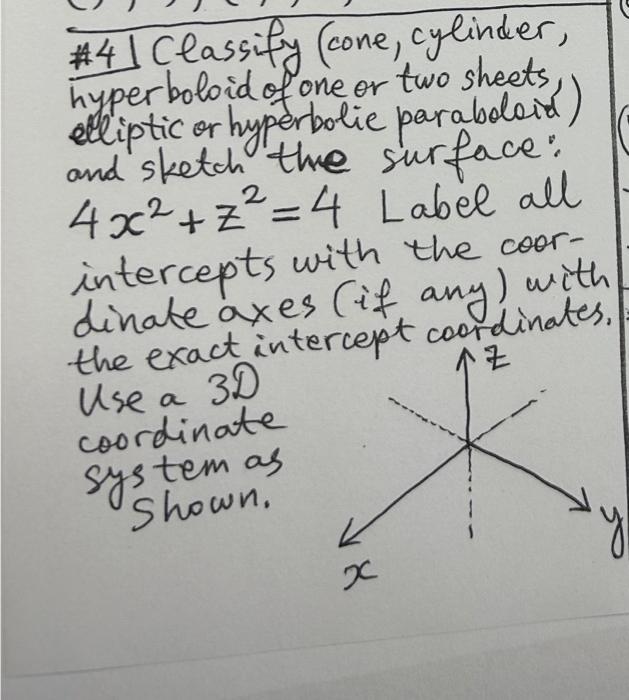 #4 Classify (cone, cylinder,
hyperboloid of one or two sheets,
elliptic or hyperbolic paraboloid)
and sketch the surface:
4x² + z² = 4 Label all
intercepts with the coor-
dinate axes (if any) with
the exact intercept coordinates.
Use a 3D
coordinate
system as
shown.
z
y
x